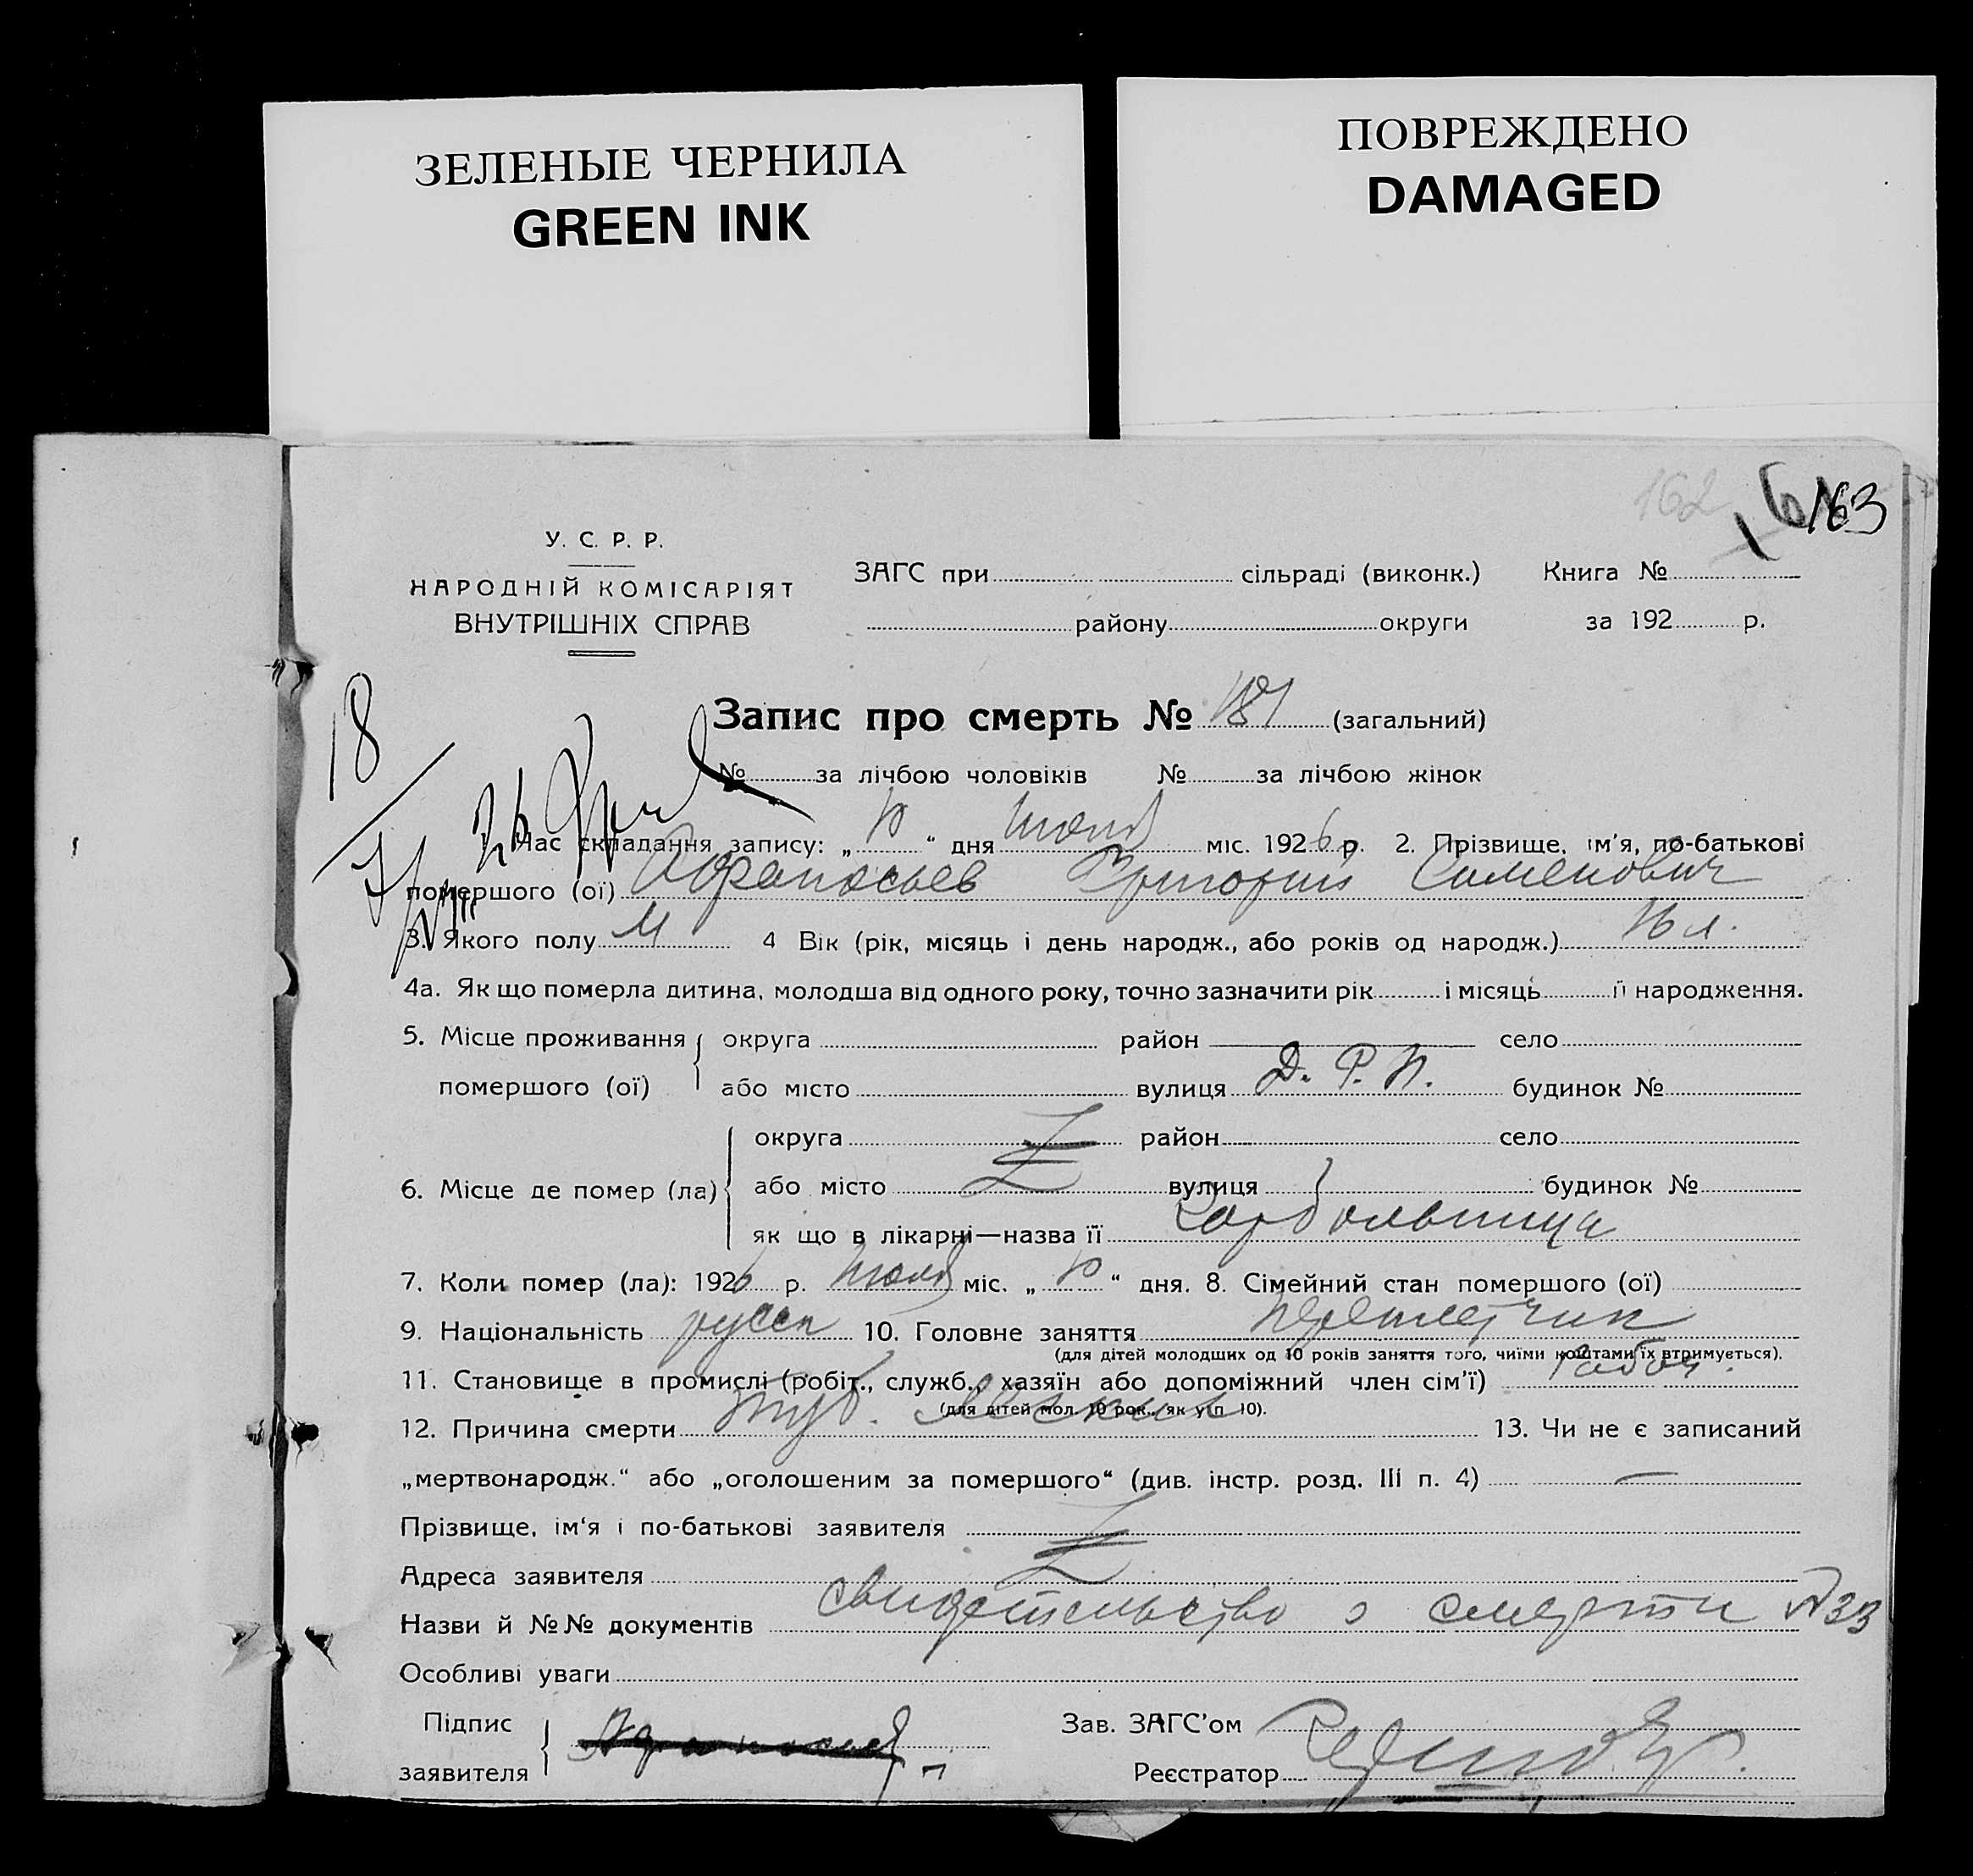 ЗЕЛЕНЫЕ ЧЕРНИЛА
GREEN INK
ПОВРЕЖДЕНО
DAMAGED
162 163
У. С. Р. Р.
НАРОДНІЙ КОМІСАРІЯТ
ВНУТРІШНІХ СПРАВ
ЗАГС при сільраді (виконк.) Книга №
району округи за 192 р.
18
Запис про смерть № 181 (загальний)
№ за лічбою чоловіків № за лічбою жінок
Час складання запису: „10“ дня Июля міс. 1926 р. 2. Прізвище, ім'я, по-батькові
помершого (ої) Афанасьев Григорий Семенович
3. Якого полу М 4 Вік (рік, місяць і день народж., або років од народж.) л.
4а. Як що померла дитина, молодша від одного року, точно зазначити рік і місяць її народження.
5. Місце проживання округа район село
помершого (ої) або місто вулиця Д. Р. П. будинок №
округа район село
6. Місце де помер (ла) або місто вулиця будинок №
як що в лікарні—назва її больница
7. Коли помер (ла): 1926 р. Июля міс. „10“ дня. 8. Сімейний стан помершого (ої)
9. Національність русск 10. Головне заняття переплетчик
(для дітей молодших од 10 років заняття того, чиїми коштами їх втримується).
11. Становище в промислі (робіт., служб., хазяїн або допоміжний член сім'ї) рабоч.
(для дітей мол. 10 рок., як у п. 10).
12. Причина смерти туб. легких 13. Чи не є записаний
„мертвонародж.“ або „оголошеним за помершого“ (див. інстр. розд. III п. 4) —
Прізвище, ім'я і по-батькові заявителя
Адреса заявителя
Назви й №№ документів свидетельство о смерти №33
Особливі уваги
Підпис Зав. ЗАГС'ом
заявителя Реєстратор